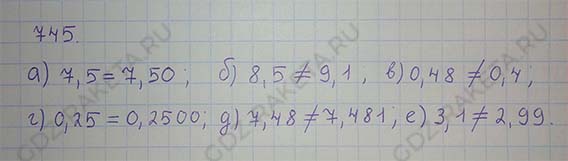 745.
а) 7,5 = 7,50 ; б) 8,5 ≠ 9,1 , в) 0,48 ≠ 0,4 ;
г) 0,25 = 0,2500; д) 7,48 ≠ 7,481; е) 3,1 ≠ 2,99.
GDZRAKETA.RU